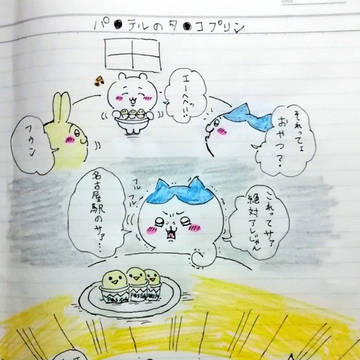 パ●テルのタ●コプリン
エーへへい!!
それってさ
おやつ?
フゥン
これってサァ
絶対アレじゃん
プル
プル
名古屋駅のサァ…